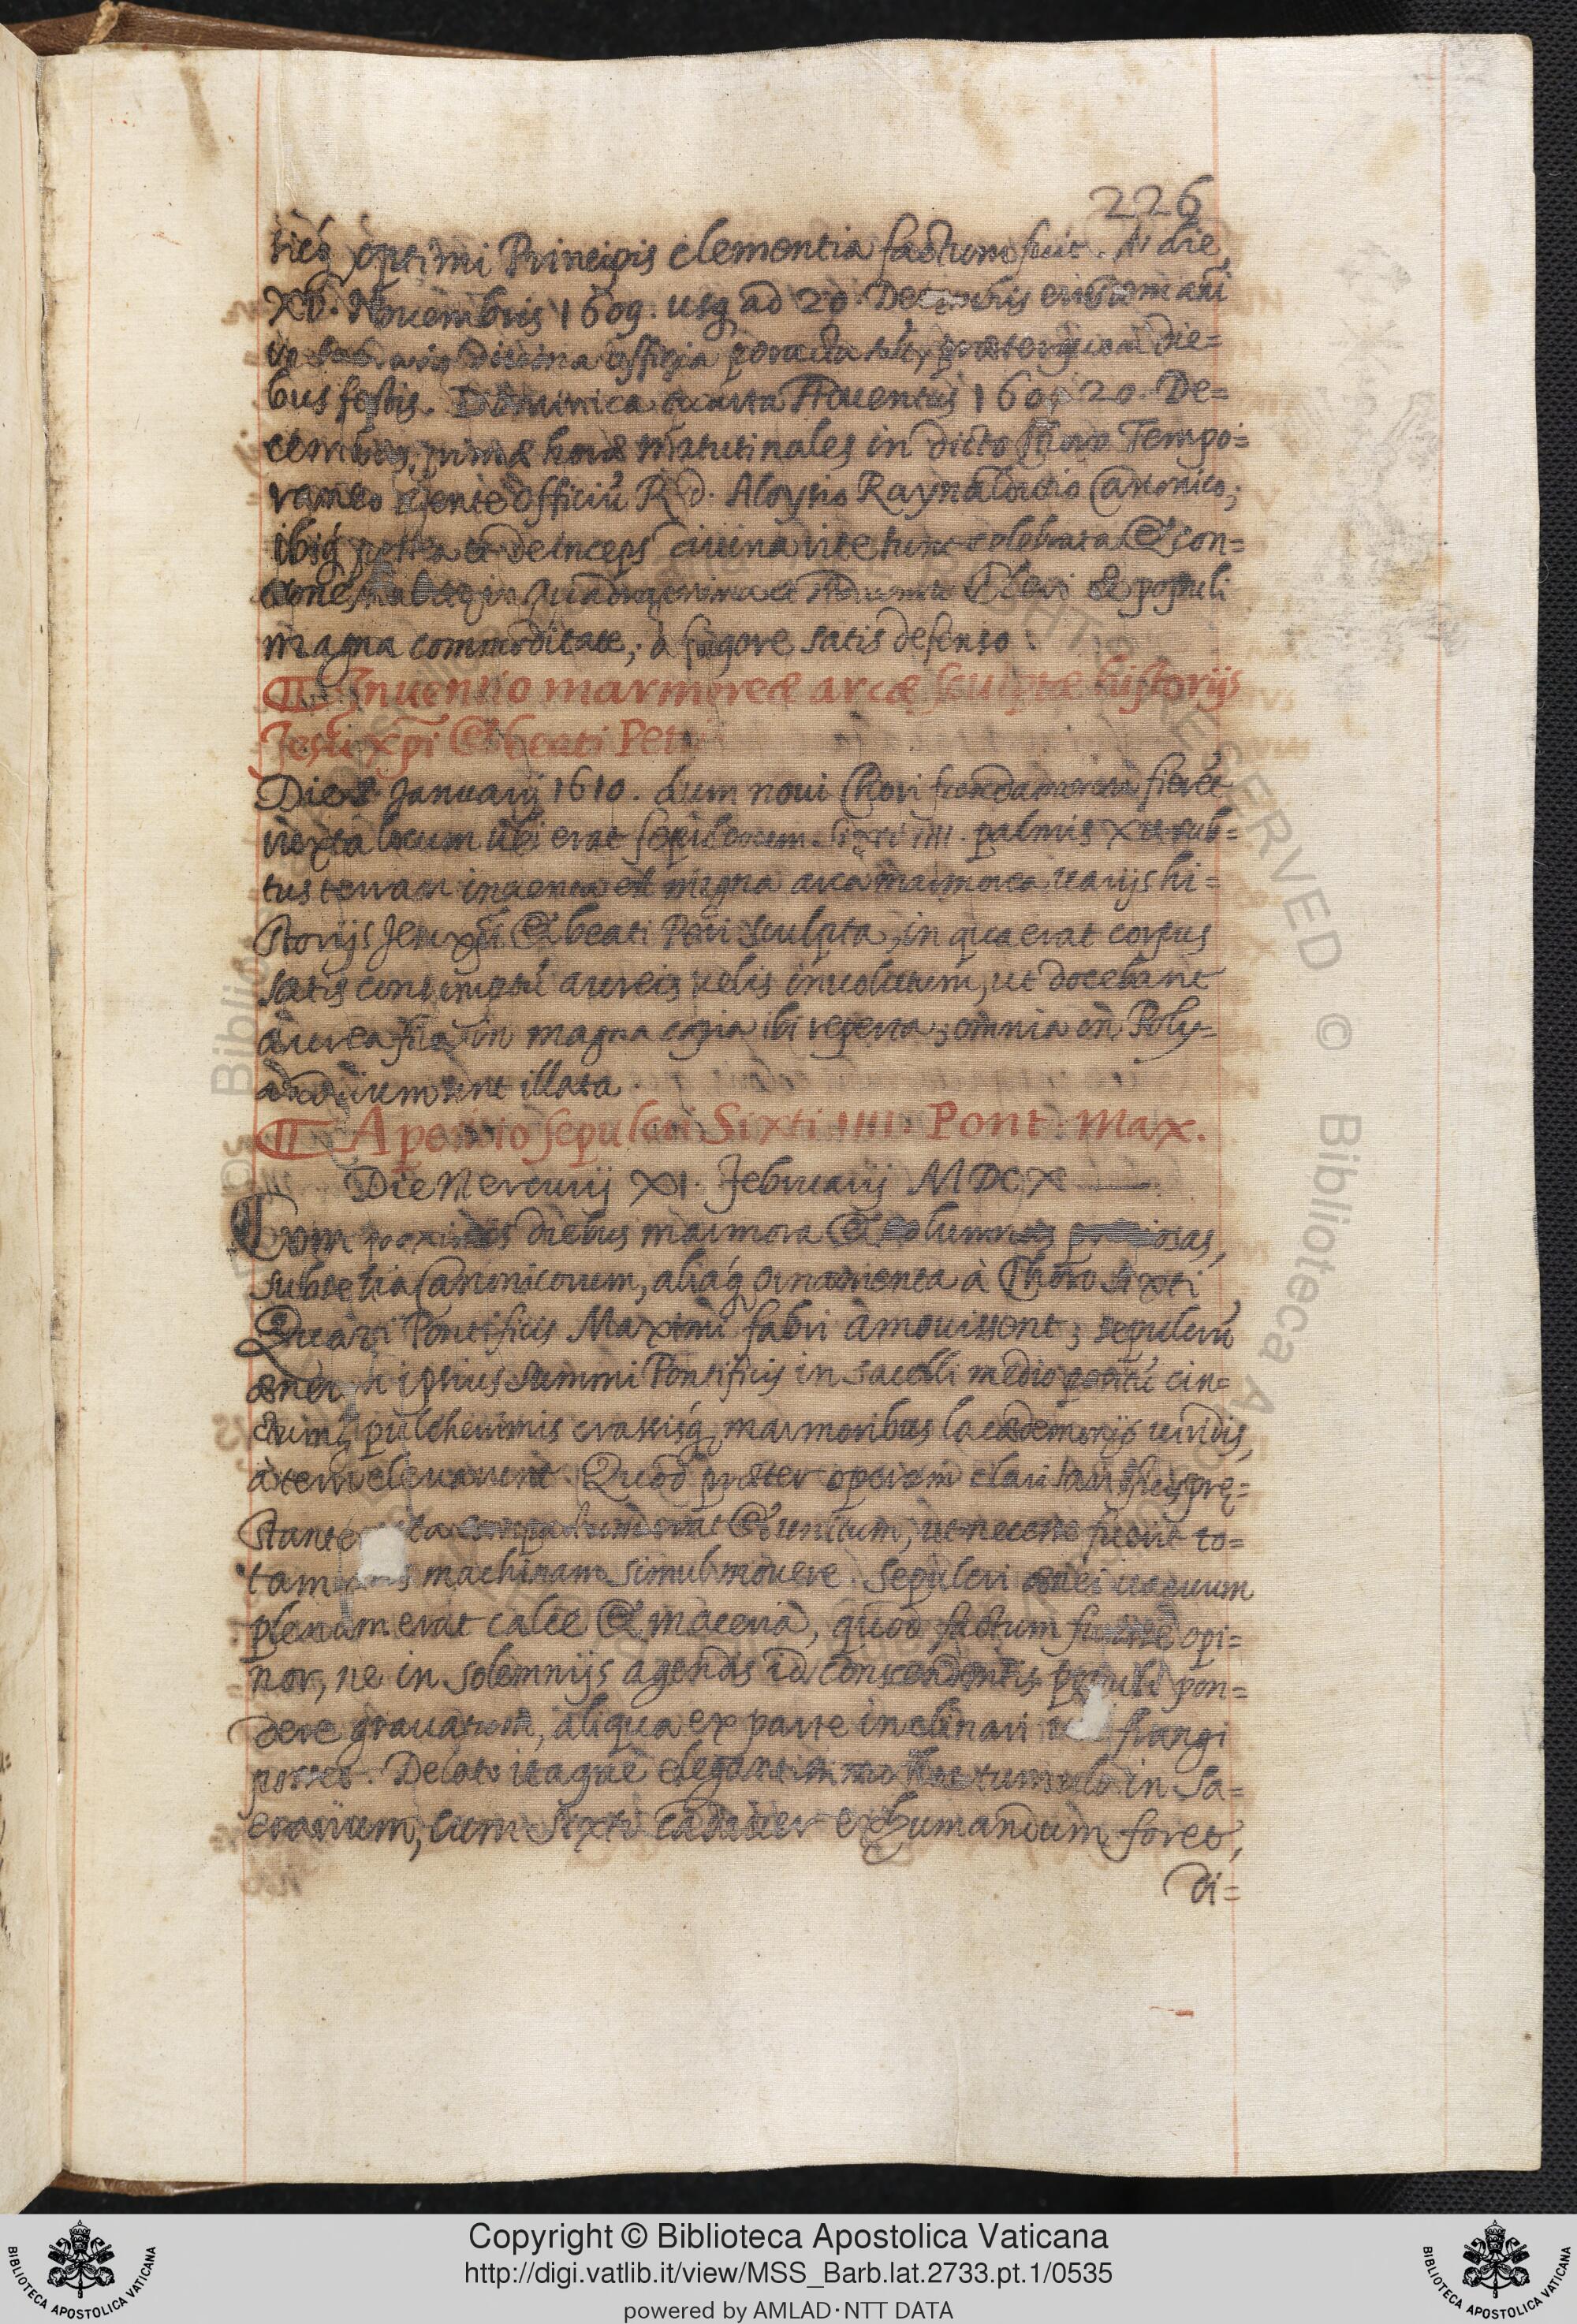 226
optimi Principis clementia factum fuit. A die
XV. Nouembris 1609. usq ad 20. Decembris
diuina officia peracta die=
bus festis. Dominica quarta Aduentus 1609 20. De=
cembris, primæ horæ matutinales in dicto Tempo=
raneo Officiū R. D. Aloysio Canonico;
ibiq postea et deinceps celebrata & con=
Quadragesima et Cleri & populi
magna commoditate; à frigore satis defenso.
Inuentio marmoreæ arcæ sculptæ historijs
Jesu xpi & beati Petri
Die Januarij 1610. dum noui Chori fundamenta
iuxta locum ubi erat sepulcrum Sixti IIII. palmis sub=
tus terram inuenta est magna arca marmorea uarijs hi=
storijs Jesu xpi & beati Petri sculpta, in qua erat corpus
satis consumptū aureis uelis inuolutum, ut docebant
aurea fila in magna copia ibi reperta; omnia in Poly=
andrium sunt illata.
Apertio sepulcri Sixti IIII. Pont. Max.
Die Mercurij XI. Februarij MDCX
Cum proximis diebus marmora & columnas pretiosas,
subsellia Canonicorum, aliaq ornamenta à Choro Sixti
Quarti Pontificis Maximi fabri amouissent; sepulcrū
ipsius summi Pontificis in sacelli medio positū cin=
ctumq pulcherrimis crassisq marmoribus lacedemonijs uiridis,
à terra eleuarunt. Quod præter operam clari prę=
& unitum, ut necesse fuerit to=
tam machinam simul mouere. Sepulcri ænei uacuum
plenum erat calce & maceria, quod factum fuisse opi=
nor, ne in solemnijs agendis id conscendentis populi pon=
dere grauatum, aliqua ex parte inclinari frangi
posset. Delato itaque elegantissimo tumulo in Sa=
crarium, cum Sixti cadauer exhumandum foret,
di=
Copyright © Biblioteca Apostolica Vaticana
http://digi.vatlib.it/view/MSS_Barb.lat.2733.pt.1/0535
powered by AMLAD·NTT DATA
BIBLIOTECA APOSTOLICA VATICANA
BIBLIOTECA APOSTOLICA VATICANA